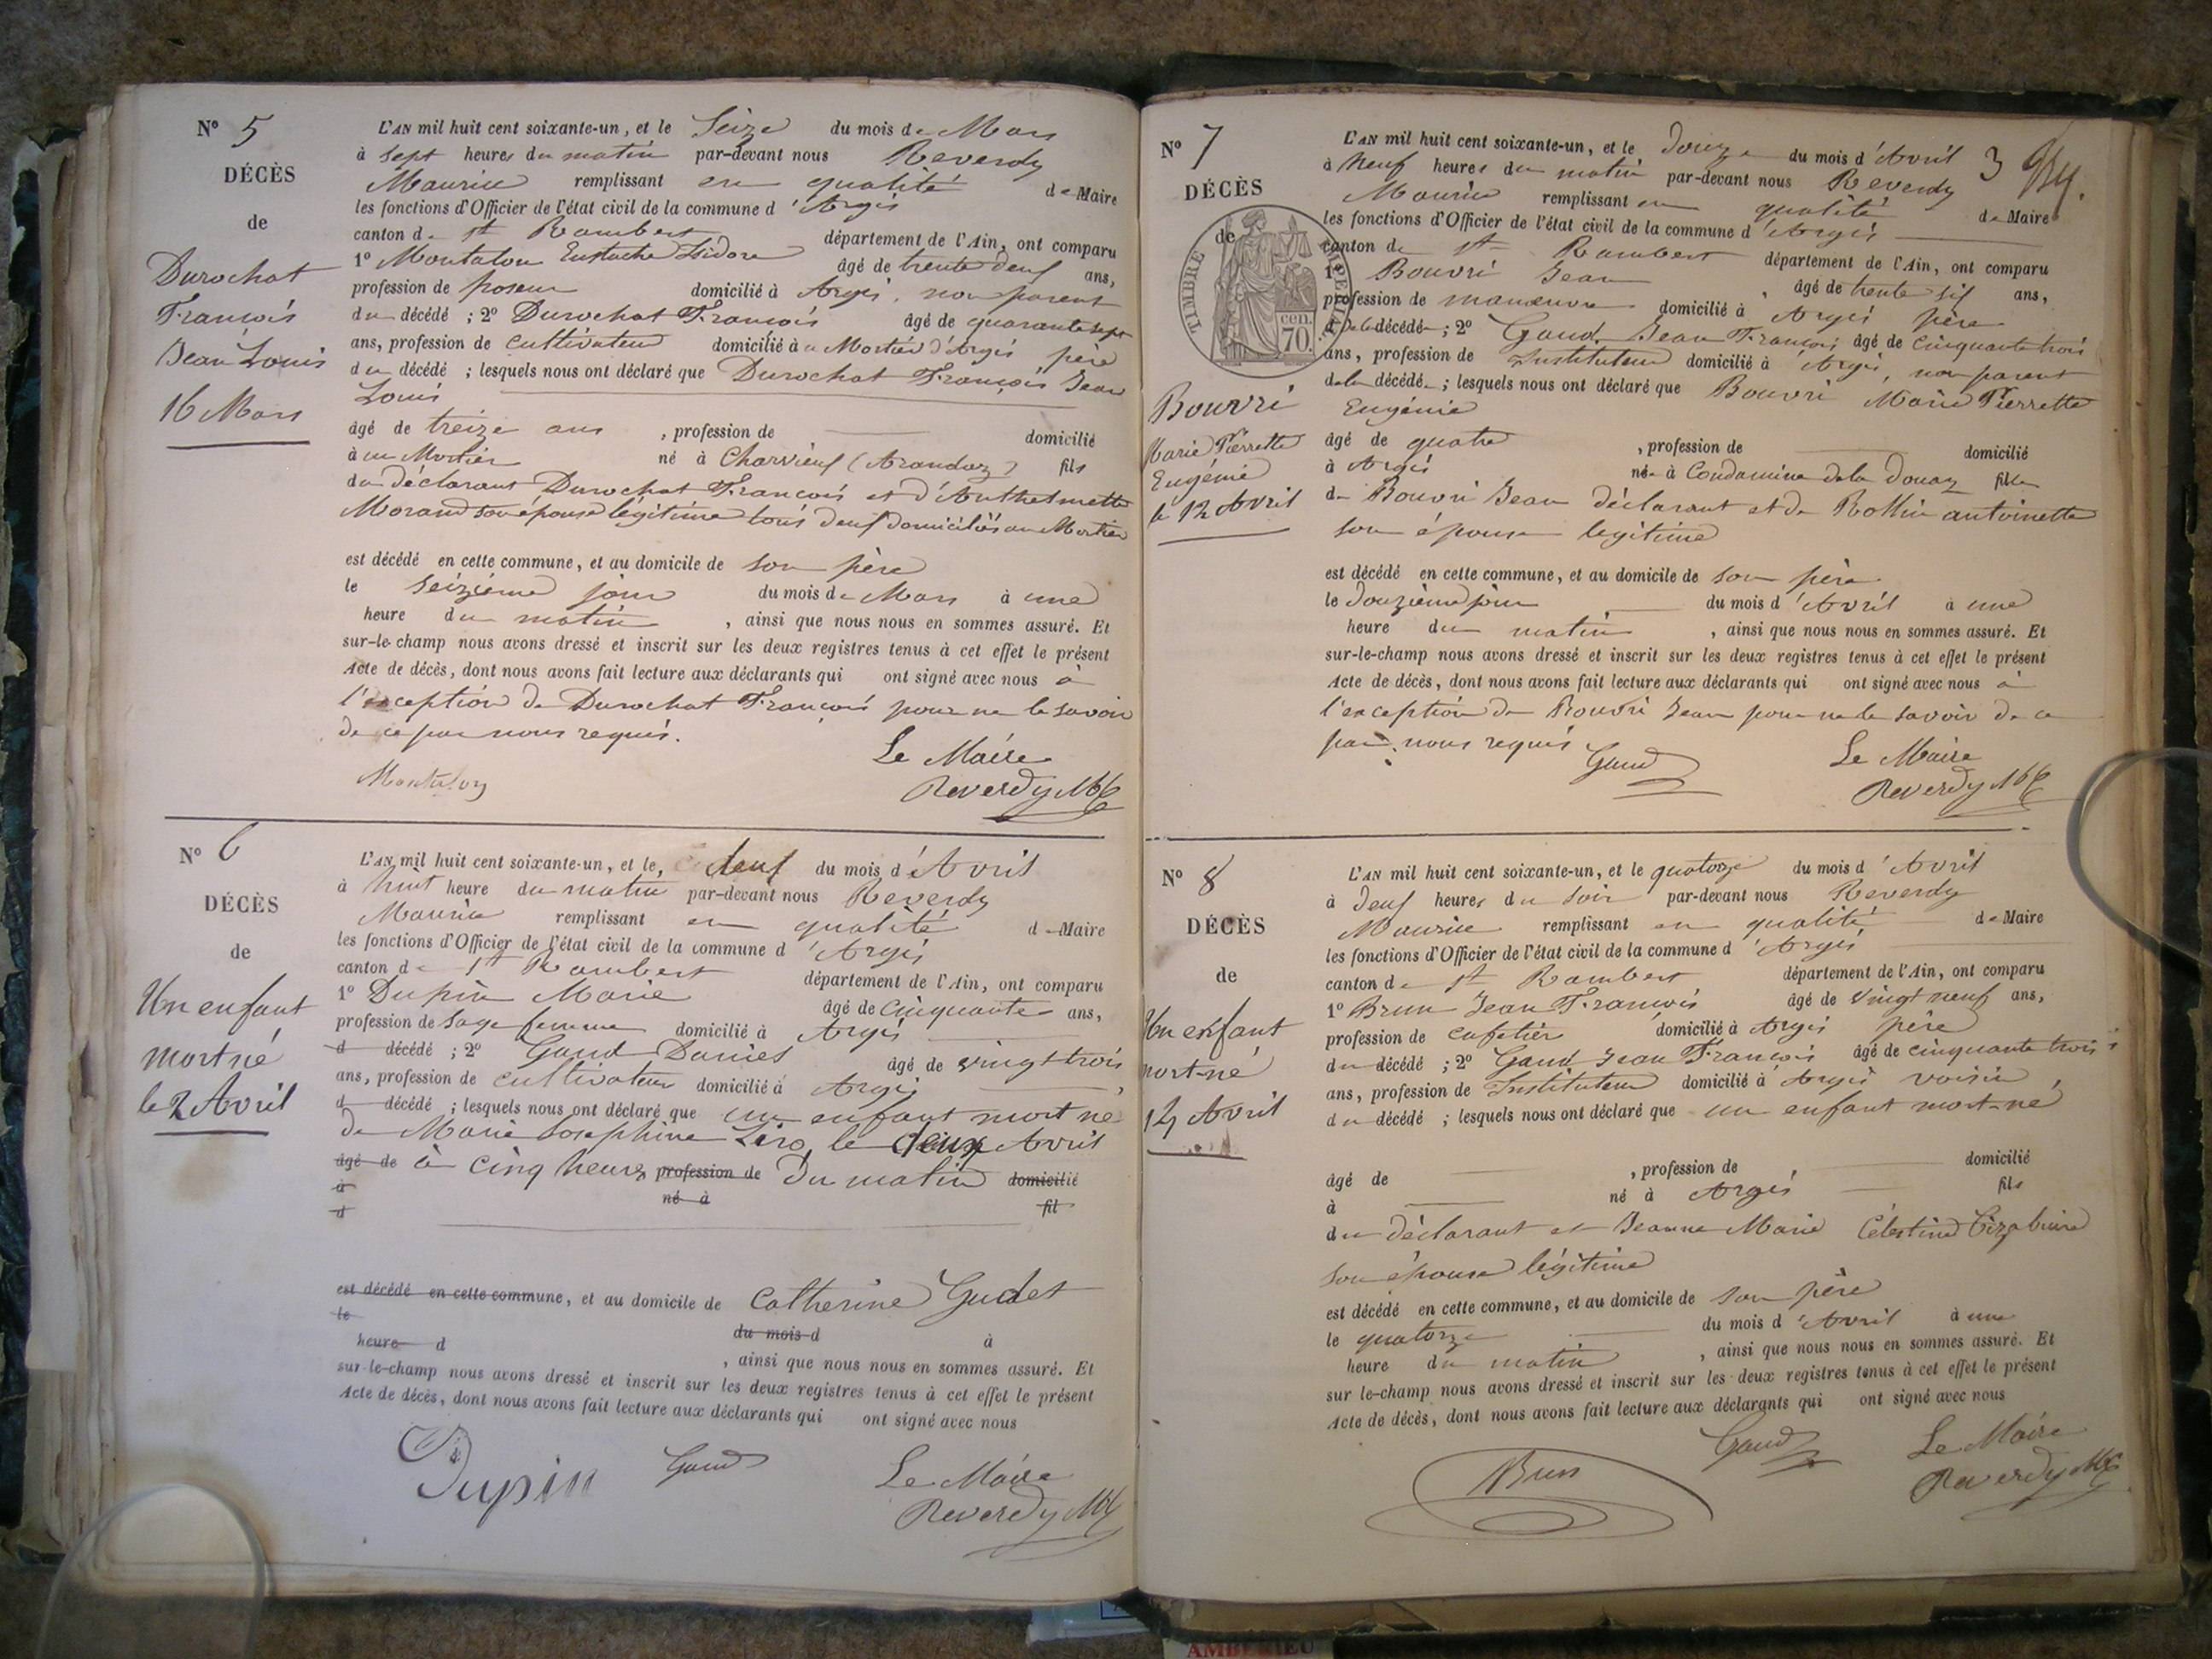 N° 5
DÉCÈS
de
Durochat
François
Jean Louis
16 Mars
L'AN mil huit cent soixante-un, et le Seize du mois de Mars
à sept heures du matin par-devant nous Reverdy
Maurice remplissant en qualité de Maire
les fonctions d'Officier de l'état civil de la commune d'Argis
canton de St Rambert département de l'Ain, ont comparu
1° Montalon Eustache Isidore âgé de trente deux ans,
profession de poseur domicilié à Argis, non parent
du décédé ; 2° Durochat François âgé de quarante sept
ans, profession de cultivateur domicilié à Mortier d'Argis père
du décédé ; lesquels nous ont déclaré que Durochat François Jean
Louis
âgé de treize ans , profession de domicilié
à au Mortier né à Charvieux (Arandaz) fils
du déclarant Durochat François et d'Anthelmette
Morand son épouse légitime tous deux domiciliés au Mortier
est décédé en cette commune, et au domicile de son père
le seizième jour du mois de Mars à une
heure du matin , ainsi que nous nous en sommes assuré. Et
sur-le-champ nous avons dressé et inscrit sur les deux registres tenus à cet effet le présent
Acte de décès, dont nous avons fait lecture aux déclarants qui ont signé avec nous à
l'exception de Durochat François pour ne le savoir
de ce par nous requis.
Le Maire
Montalon Reverdy
N° 6
DÉCÈS
de
Un enfant
mort né
le 2 Avril
L'AN mil huit cent soixante-un, et le, deux du mois d'Avril
à huit heure du matin par-devant nous Reverdy
Maurice remplissant en qualité de Maire
les fonctions d'Officier de l'état civil de la commune d'Argis
canton de St Rambert département de l'Ain, ont comparu
1° Dupin Marie âgé de cinquante ans,
profession de sage femme domicilié à Argis
d décédé ; 2° Gaud Daniès âgé de vingt trois
ans, profession de cultivateur domicilié à Argis
d décédé ; lesquels nous ont déclaré que un enfant mort né
de Marie Josephine le deux Avril
âgé de à cinq heures profession de du matin domicilié
à né à
d fil
est décédé en cette commune, et au domicile de Catherine Gudet
le du mois d à
heure d , ainsi que nous nous en sommes assuré. Et
sur-le-champ nous avons dressé et inscrit sur les deux registres tenus à cet effet le présent
Acte de décès, dont nous avons fait lecture aux déclarants qui ont signé avec nous
Dupin Gaud Le Maire
Reverdy
N° 7
3
DÉCÈS
de
TIMBRE
cen.
70.
Bouvri
Marie Pierrette
Eugénie
le 12 Avril
L'AN mil huit cent soixante-un, et le douze du mois d'Avril
à Neuf heures du matin par-devant nous Reverdy
Maurice remplissant en qualité de Maire
les fonctions d'Officier de l'état civil de la commune d'Argis
canton de St Rambert département de l'Ain, ont comparu
1° Bouvri Jean âgé de trente six ans,
profession de manœuvre domicilié à Argis père
de la décédée ; 2° Gaud Jean François âgé de cinquante trois
ans, profession de Instituteur domicilié à Argis, non parent
de la décédée ; lesquels nous ont déclaré que Bouvri Marie Pierrette
Eugénie
âgé de quatre , profession de domicilié
à Argis née à Condamine de la Douay fille
de Bouvri Jean déclarant et de Rollin antoinette
son épouse légitime
est décédé en cette commune, et au domicile de son père
le douzième jour du mois d'Avril à une
heure du matin , ainsi que nous nous en sommes assuré. Et
sur-le-champ nous avons dressé et inscrit sur les deux registres tenus à cet effet le présent
Acte de décès, dont nous avons fait lecture aux déclarants qui ont signé avec nous à
l'exception de Bouvri Jean pour ne le savoir de ce
par nous requis
Gaud Le Maire
Reverdy
N° 8
DÉCÈS
de
Un enfant
mort-né
14 Avril
L'AN mil huit cent soixante-un, et le quatorze du mois d'Avril
à deux heures du soir par-devant nous Reverdy
Maurice remplissant en qualité de Maire
les fonctions d'Officier de l'état civil de la commune d'Argis
canton de St Rambert département de l'Ain, ont comparu
1° Brun Jean François âgé de vingt neuf ans,
profession de cafetier domicilié à Argis père
du décédé ; 2° Gaud Jean François âgé de cinquante trois
ans, profession de Instituteur domicilié à Argis voisin
du décédé ; lesquels nous ont déclaré que un enfant mort-né
âgé de , profession de domicilié
à né à Argis fils
du déclarant et Jeanne Marie Célestine
son épouse légitime
est décédé en cette commune, et au domicile de son père
le quatorze du mois d'Avril à une
heure du matin , ainsi que nous nous en sommes assuré. Et
sur-le-champ nous avons dressé et inscrit sur les deux registres tenus à cet effet le présent
Acte de décès, dont nous avons fait lecture aux déclarants qui ont signé avec nous
Brun Gaud Le Maire
Reverdy
AMBÉRIEU